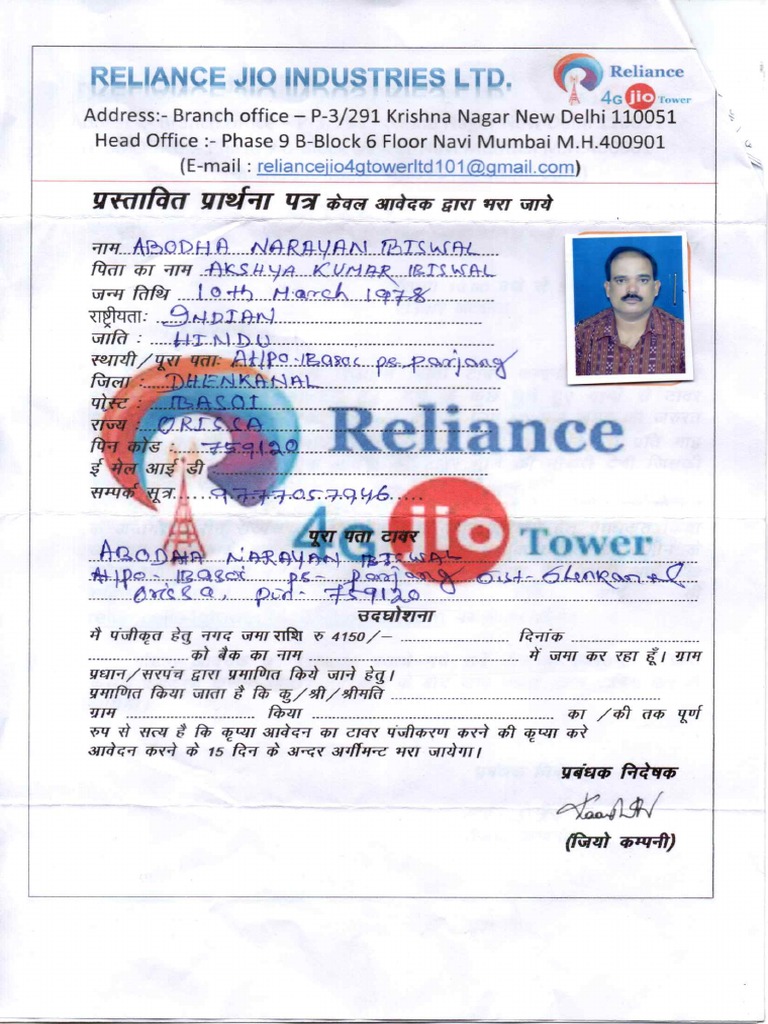 RELIANCE JIO INDUSTRIES LTD.
Reliance
4G jio Tower
Address:- Branch office – P-3/291 Krishna Nagar New Delhi 110051
Head Office :- Phase 9 B-Block 6 Floor Navi Mumbai M.H.400901
(E-mail : reliancejio4gtowerltd101@gmail.com)
प्रस्तावित प्रार्थना पत्र केवल आवेदक द्वारा भरा जाये
नाम ABODHA NARAYAN BISWAL
पिता का नाम AKSHYA KUMAR BISWAL
जन्म तिथि 10th March 1978
राष्ट्रीयताः INDIAN
जाति : HINDU
स्थायी/पूरा पताः At/Po-Basoi ps-parjang
जिला : DHENKANAL
पोस्ट : BASOI
राज्य : ORISSA
पिन कोड : 759120
ई मेल आई डी
सम्पर्क सूत्र 9777057946
Reliance
4G jio Tower
पूरा पता टावर
ABODHA NARAYAN BISWAL
At/po- Basoi ps- parjang Dist- Dhenkanal
Orissa, pin- 759120
उदघोशना
मै पंजीकृत हेतु नगद जमा राशि रु 4150/– दिनांक
को बैक का नाम में जमा कर रहा हूँ। ग्राम
प्रधान/सरपंच द्वारा प्रमाणित किये जाने हेतु।
प्रमाणित किया जाता है कि कु/श्री/श्रीमति
ग्राम किया का /की तक पूर्ण
रुप से सत्य है कि कृप्या आवेदन का टावर पंजीकरण करने की कृप्या करे
आवेदन करने के 15 दिन के अन्दर अर्गीमन्ट भरा जायेगा।
प्रबंधक निदेषक
(जियो कम्पनी)